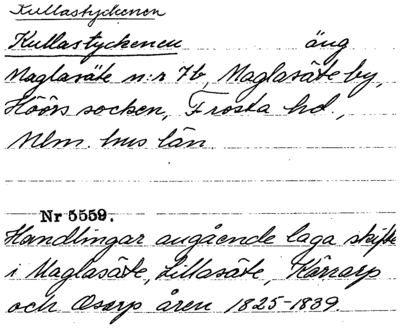 Kullastyckenen
Kullastyckenen äng
Maglasäte n:r 7b, Maglasäte by,
Höörs socken, Frosta hd.,
Mlm. hus län
Nr 5559.
Handlingar angående laga skifte
i Maglasäte, Lillasäte, Kärrarp
och Osarp åren 1825-1839.